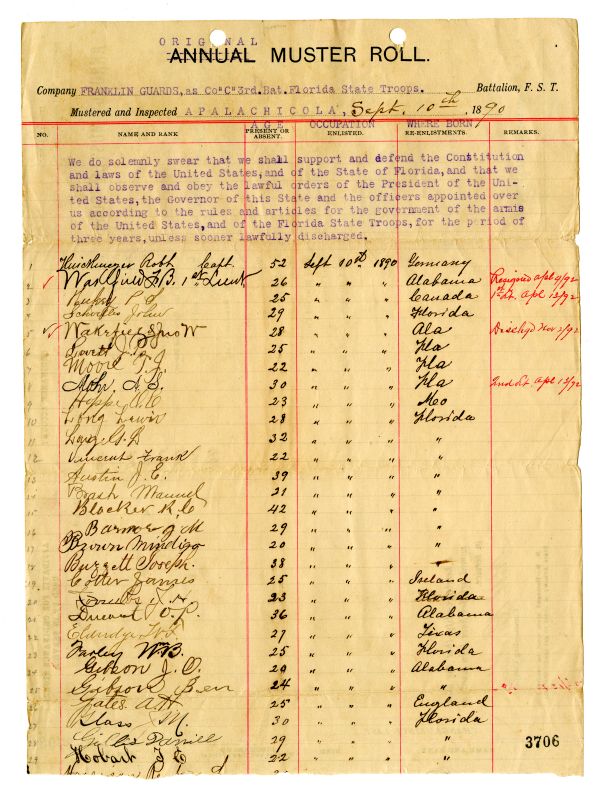 ORIGINAL
ANNUAL MUSTER ROLL.
Company FRANKLIN GUARDS, as Co"C"3rd.Bat.Florida State Troops. Battalion, F. S. T.
Mustered and Inspected APALACHICOLA, Sept. 10th, 1890
AGE OCCUPATION WHERE BORN
NO. NAME AND RANK PRESENT OR ABSENT. ENLISTED. RE-ENLISTMENTS. REMARKS.
We do solemnly swear that we shall support and defend the Constitution
and laws of the United States, and of the State of Florida, and that we
shall observe and obey the lawful orders of the President of the Uni-
ted States, the Governor of this State and the officers appointed over
us according to the rules and articles for the government of the armis
of the United States, and of the Florida State Troops, for the period of
three years, unless sooner lawfully discharged.
1 Robt Capt. 52 Sept 10th 1890 Germany
2 1st Lieut 26 " " " Alabama Resigned apl 9/92
3 25 " " " Canada 1st Lt. apl 12/92
4 John 29 " " " Florida
5 Wakefield Snow 28 " " " Ala Dischgd Nov 2/92
6 25 " " " Fla
7 Moore 22 " " " Fla
8 30 " " " Fla 2nd Lt apl 12/92
9 23 " " " Mo
10 Long Lewis 28 " " " Florida
11 32 " " " "
12 Vincent Frank 22 " " " "
13 Austin J. E. 39 " " " "
14 Bash Manuel 21 " " " "
15 Blocker R. C 42 " " " "
16 29 " " " "
17 Brown Mindigo 20 " " " "
18 Buzzett Joseph. 38 " " "
19 Cotter James 25 " " " Ireland
20 23 " " " Florida
21 36 " " " Alabama
22 27 " " " Texas
23 Farley W.B. 25 " " " Florida
24 Gibson J. C. 29 " " " Alabama
25 Gibson Ben 24 " " " "
26 Gates A. H 25 " " " England
27 30 " " " Florida
28 29 " " " "
29 Hobart 22 " " " "
3706